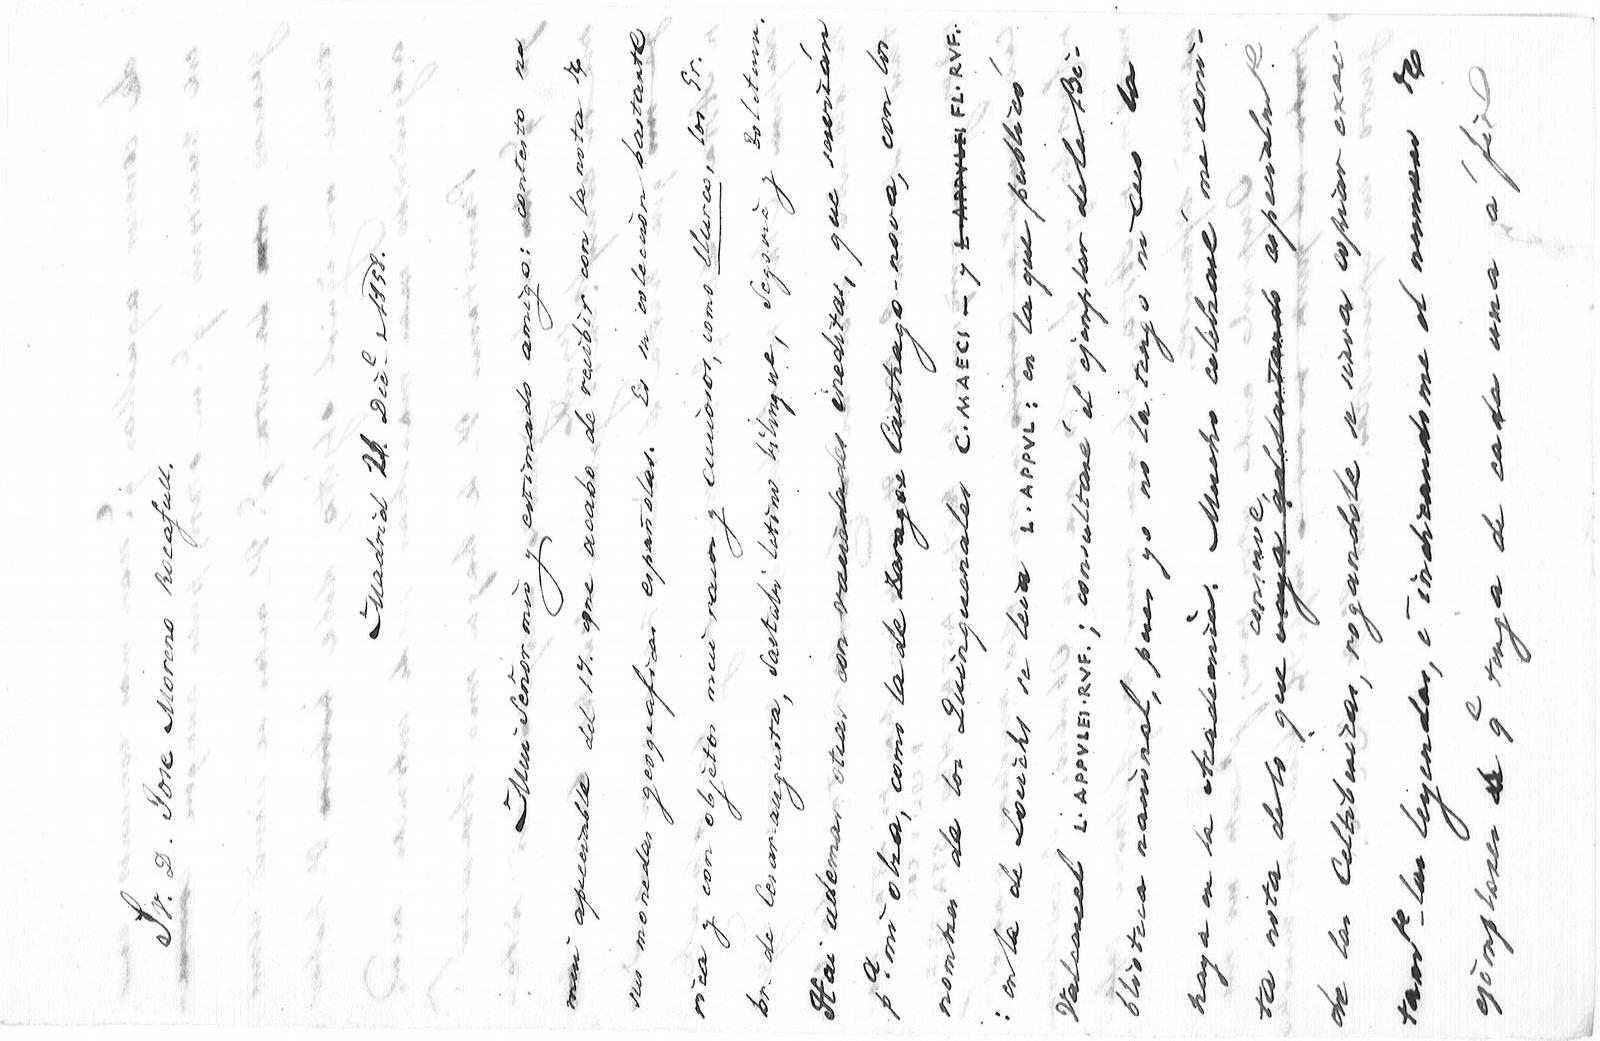 Sr. D. Jose Moreno Rocafull.
Madrid 28 Dic.e 1858.
Mui Señor mio y estimado amigo: contesto a
mui apreciable del 17. que acabo de recibir con la nota de
sus monedas geograficas españolas. Es coleccion bastante
rica y con objetos mui raros y curiosos, como Murco, los Gr.
br. de Cesaraugusta, Sastabi latino bilingue, Segovia y Toletum.
Hai ademas otras con variedades ineditas, que servirán
pa mi obra, como la de Cartago-nova, con los
nombres de los Quinquenales C. MAECI – y L APPVLEI FL. RVF.
: en la de Lorichs se leia L. APPVL: en la que publicó
L. APPVLEI. RVF.; consultaré el ejemplar de la Bi-
blioteca nacional, pues yo no la tengo ni creo la
haya en la Academia. Mucho celebraré me remi-
ta nota de lo que vaya adelantando especialmte
conserve,
de las Celtiberas, rogandole se sirva copiar exac-
tamte las leyendas, é indicandome el numero de
ejemplares de qe tenga de cada una á fin